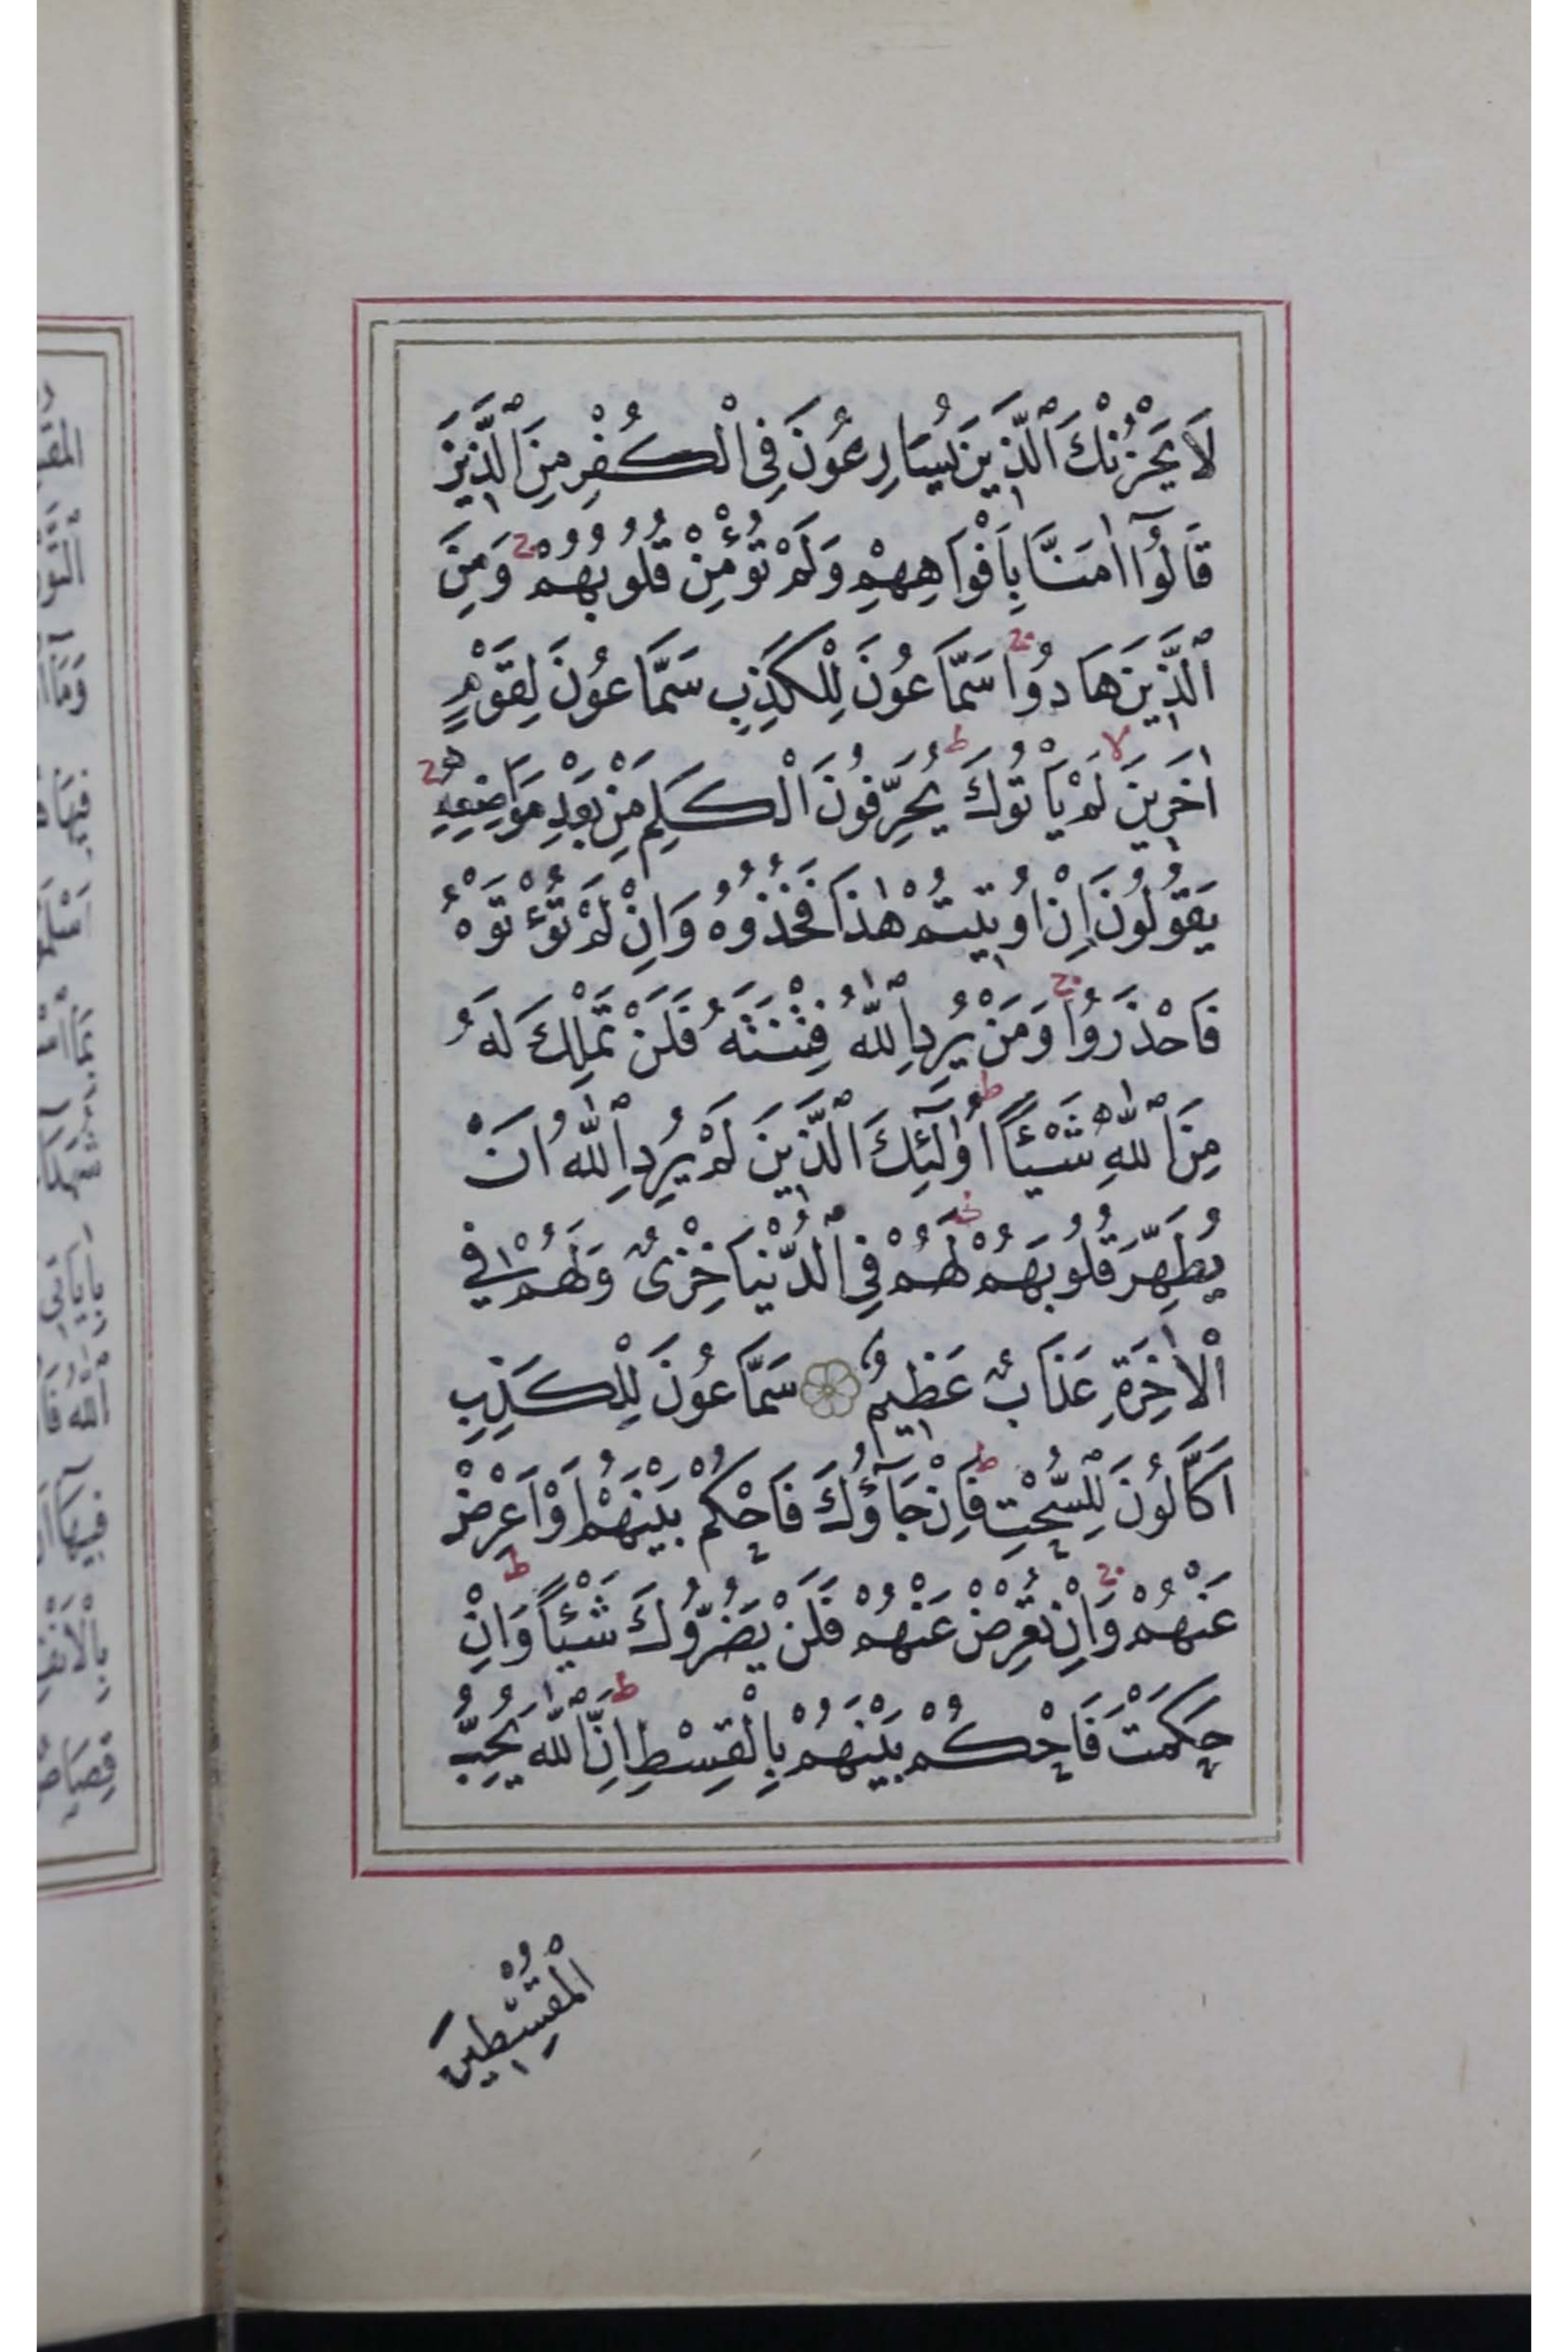 لَا يَحْزُنْكَ ٱلَّذِينَ يُسَارِعُونَ فِى الْكُفْرِ مِنَ ٱلَّذِينَ
قَالُوٓا اٰمَنَّا بِاَفْوَاهِهِمْ وَلَمْ تُؤْمِنْ قُلُوبُهُمْ ۚ وَمِنَ
ٱلَّذِينَ هَادُوا ۚ سَمَّاعُونَ لِلْكَذِبِ سَمَّاعُونَ لِقَوْمٍ
اٰخَرِينَ ۙ لَمْ يَاْتُوكَ ۭ يُحَرِّفُونَ الْكَلِمَ مِنْ بَعْدِ مَوَاضِعِهِ ۚ
يَقُولُونَ اِنْ اُوتِيتُمْ هٰذَا فَخُذُوهُ وَاِنْ لَمْ تُؤْتَوْهُ
فَاحْذَرُوا ۚ وَمَنْ يُرِدِ ٱللّٰهُ فِتْنَتَهُ فَلَنْ تَمْلِكَ لَهُ
مِنَ ٱللّٰهِ شَيْـًٔا ۭ اُولٰٓئِكَ الَّذِينَ لَمْ يُرِدِ ٱللّٰهُ اَنْ
يُطَهِّرَ قُلُوبَهُمْ ۚ لَهُمْ فِى ٱلدُّنْيَا خِزْىٌ وَلَهُمْ فِي
الْاٰخِرَةِ عَذَابٌ عَظِيمٌ سَمَّاعُونَ لِلْكَذِبِ
اَكَّالُونَ لِلسُّحْتِ ۭ فَاِنْ جَآؤُكَ فَاحْكُمْ بَيْنَهُمْ اَوْ اَعْرِضْ
عَنْهُمْ ۚ وَاِنْ تُعْرِضْ عَنْهُمْ فَلَنْ يَضُرُّوكَ شَيْـًٔا ۭ وَاِنْ
حَكَمْتَ فَاحْكُمْ بَيْنَهُمْ بِالْقِسْطِ ۭ اِنَّ ٱللّٰهَ يُحِبُّ
الْمُقْسِطِينَ